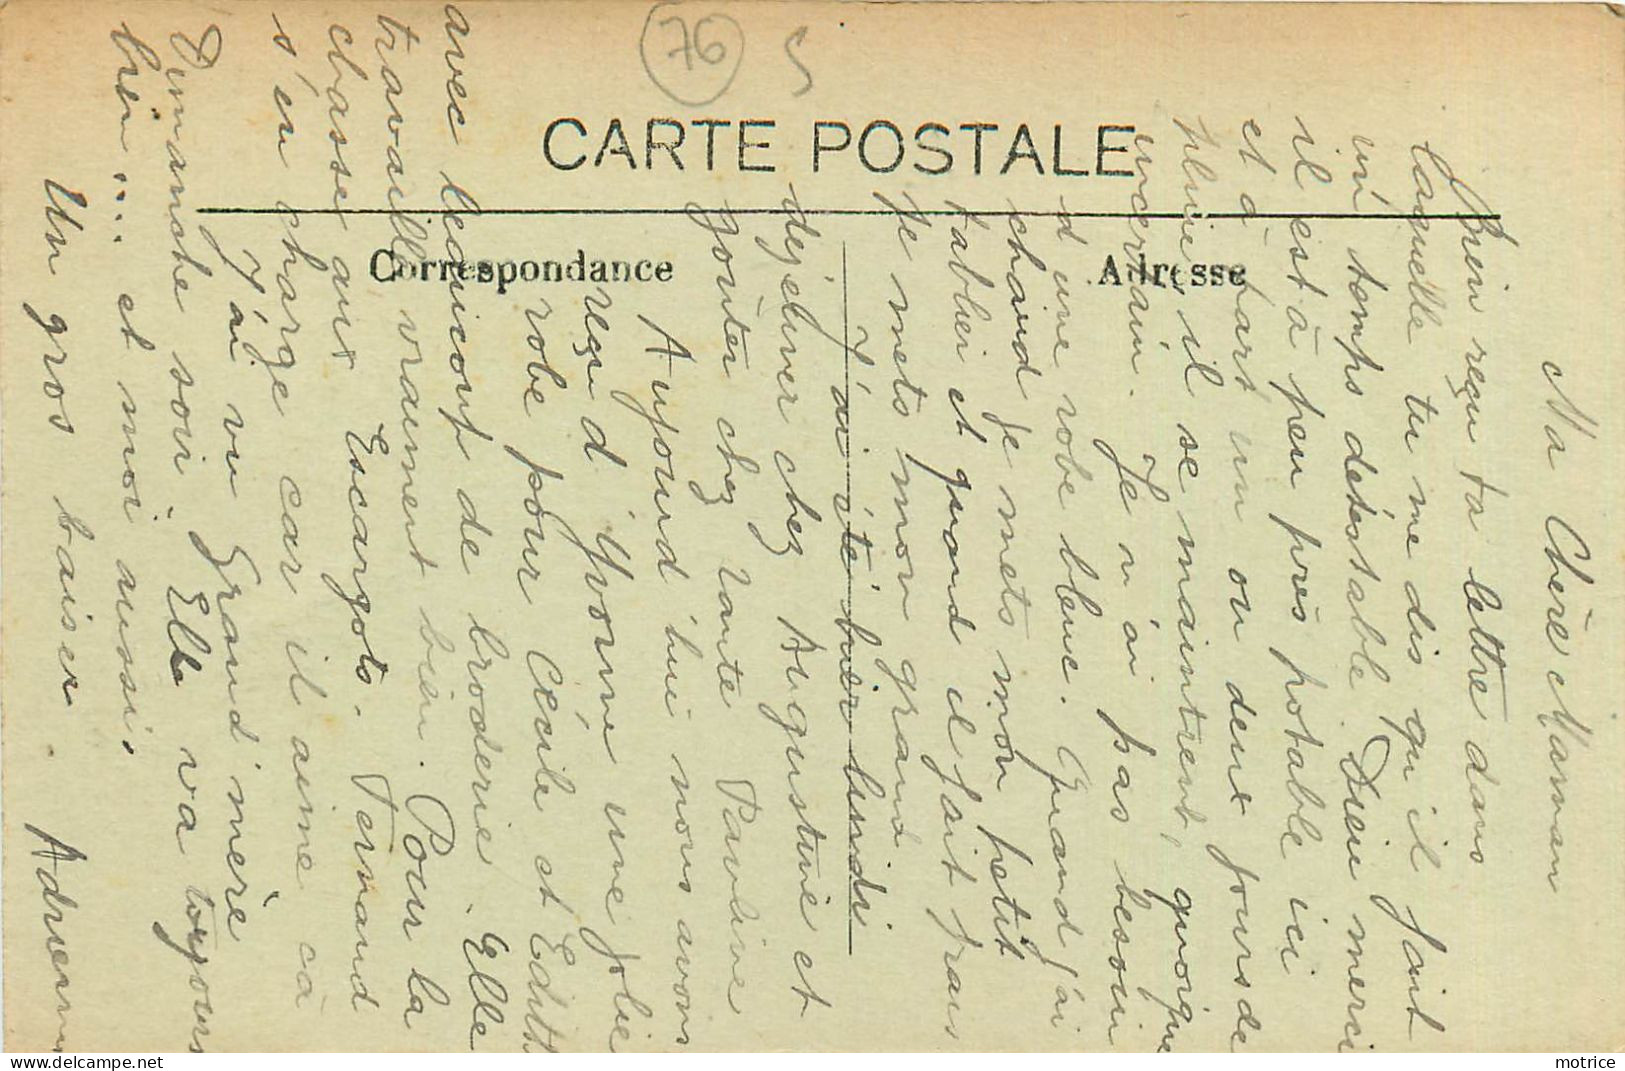 76
CARTE POSTALE
Correspondance
Adresse
Ma Chère Maman
J'ai reçu ta lettre dans
laquelle tu me dis qu'il fait
un temps détestable. Dieu merci
il est à peu près potable ici
et à part un ou deux jours de
pluie, il se maintient, quoique
incertain. Je n'ai pas besoin
d'une robe bleue. Quand j'ai
chaud je mets mon petit
tablier et quand il fait frais
je mets mon grand
J'ai été hier lundi
déjeuner chez Augustine et
goûter chez tante Pauline
Aujourd'hui nous avons
reçu d'Yvonne une jolie
robe pour Cécile et Edith
avec beaucoup de broderie. Elle
travaille vraiment bien. Pour la
chasse aux Escargots. Fernand
s'en charge car il aime ça
J'ai vu Grand'mère
Dimanche soir. Elle va toujours
bien... et moi aussi.
Un gros baiser. Adrienne
motrice